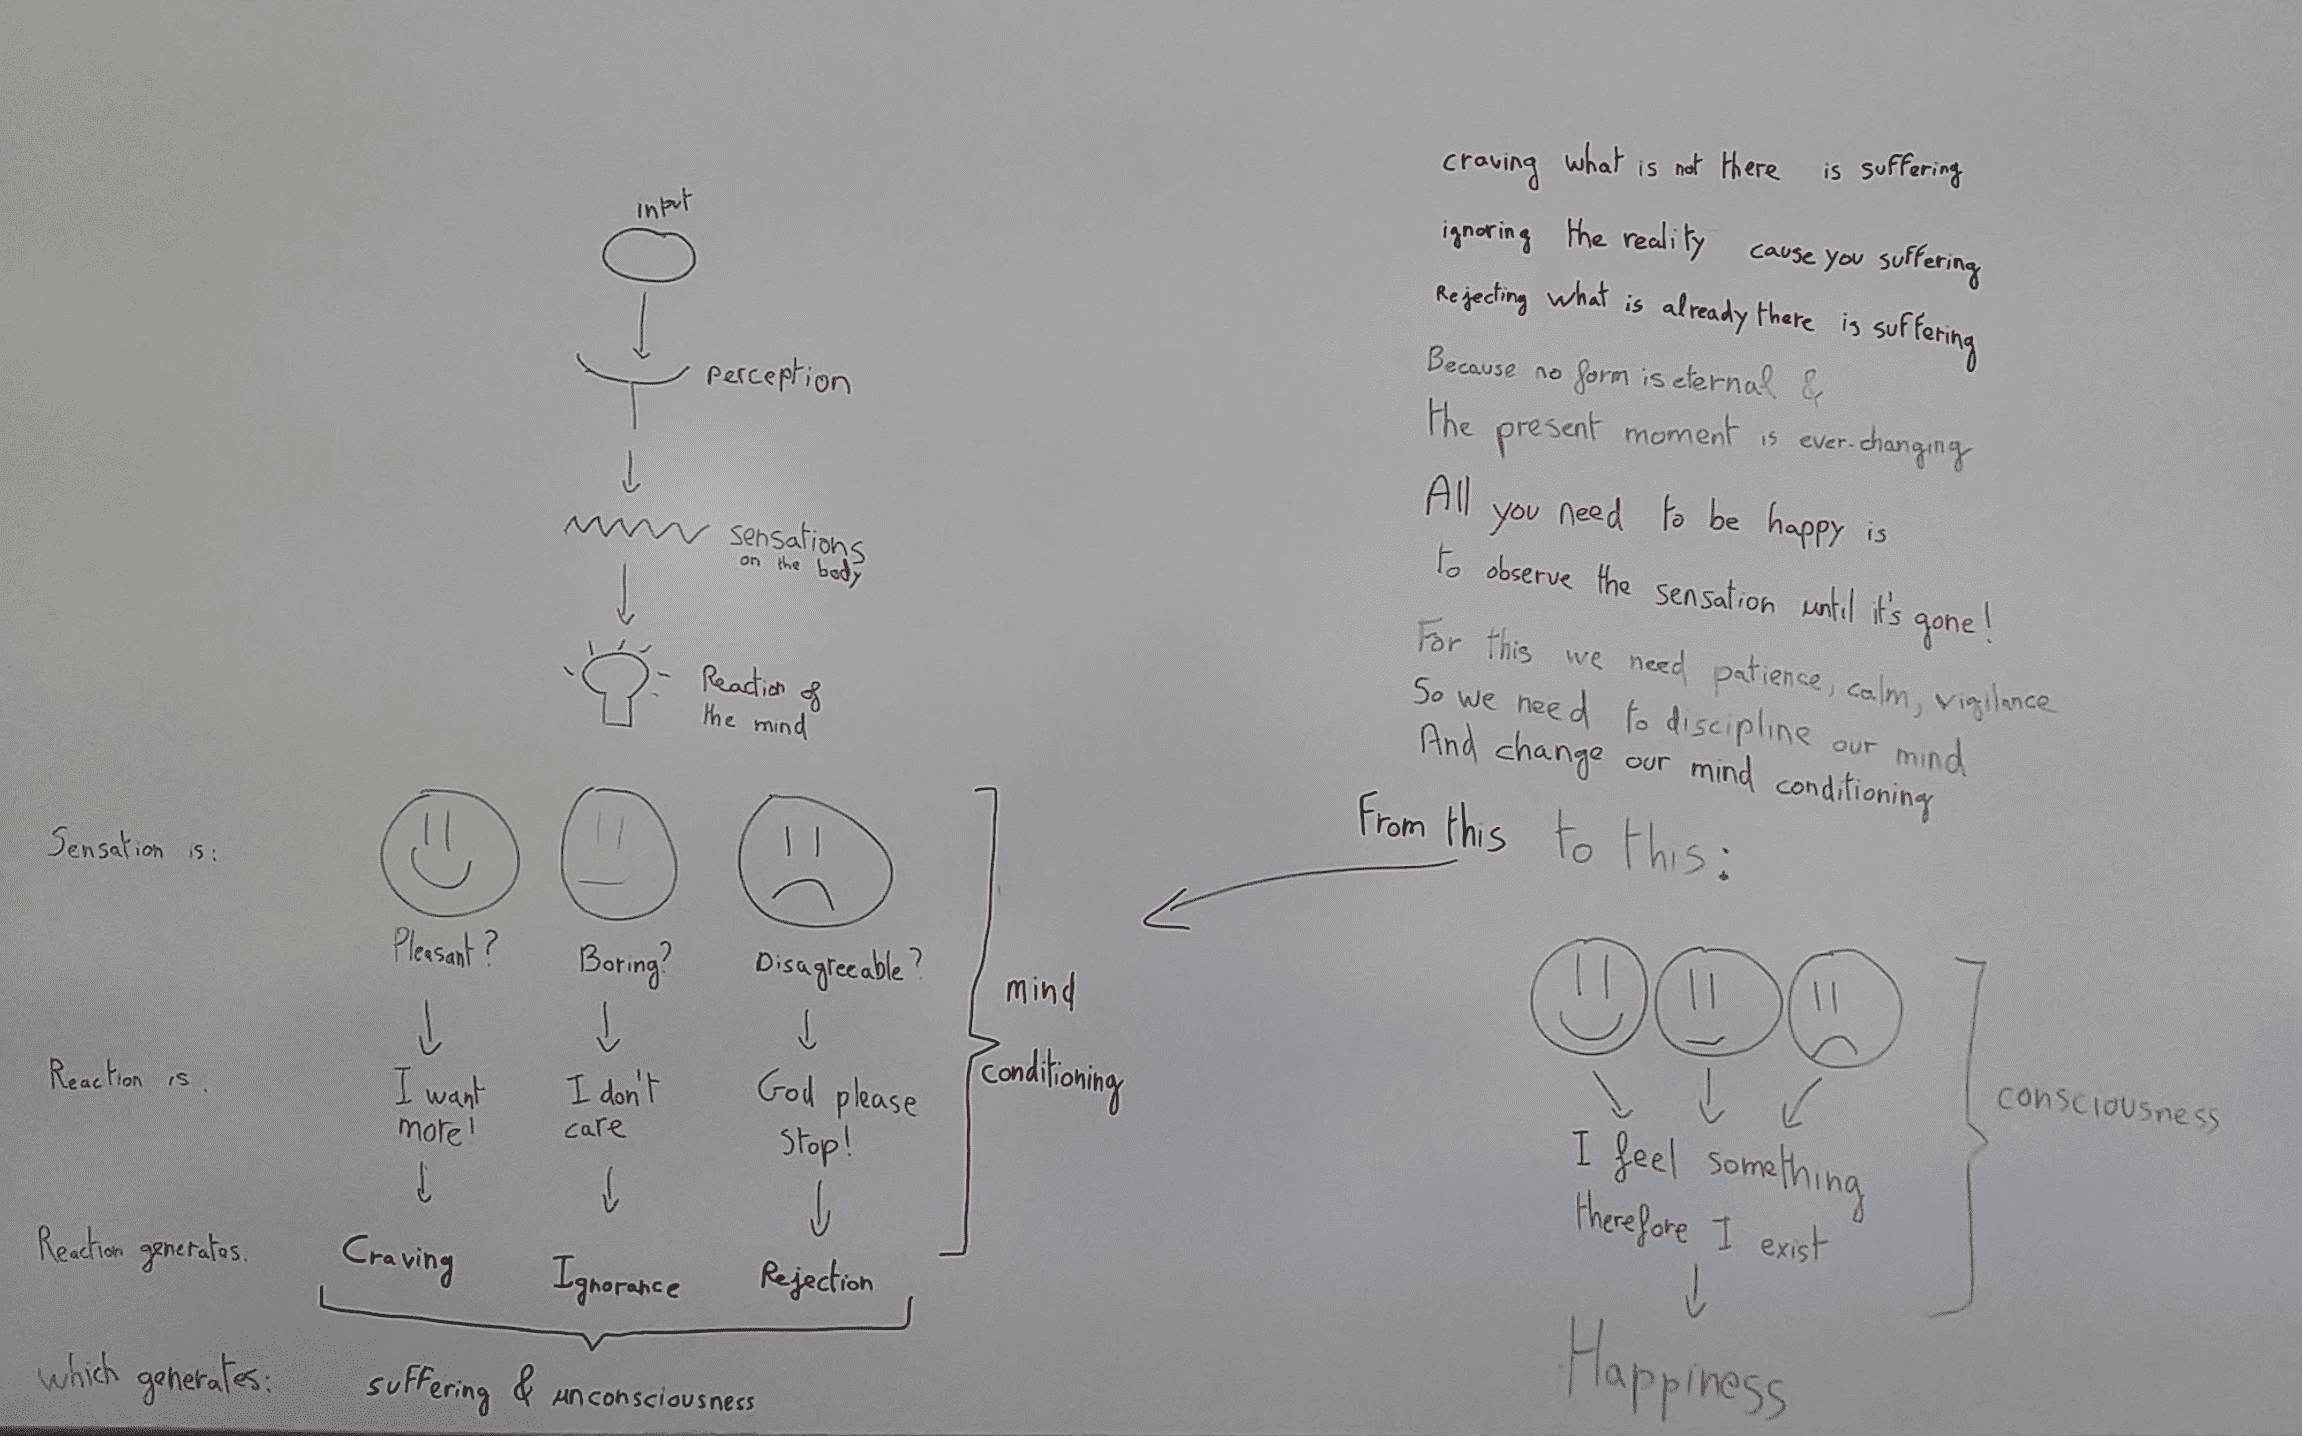 input
perception
sensations
on the body
Reaction of
the mind
Sensation is:
Pleasant?
Boring?
Disagreeable?
Reaction is:
I want
more!
I don't
care
God please
stop!
Reaction generates:
Craving
Ignorance
Rejection
mind
conditioning
which generates:
suffering & unconsciousness
craving what is not there is suffering
ignoring the reality cause you suffering
Rejecting what is already there is suffering
Because no form is eternal &
the present moment is ever-changing
All you need to be happy is
to observe the sensation until it's gone!
For this we need patience, calm, vigilance
So we need to discipline our mind
And change our mind conditioning
From this to this:
I feel something
therefore I exist
consciousness
Happiness